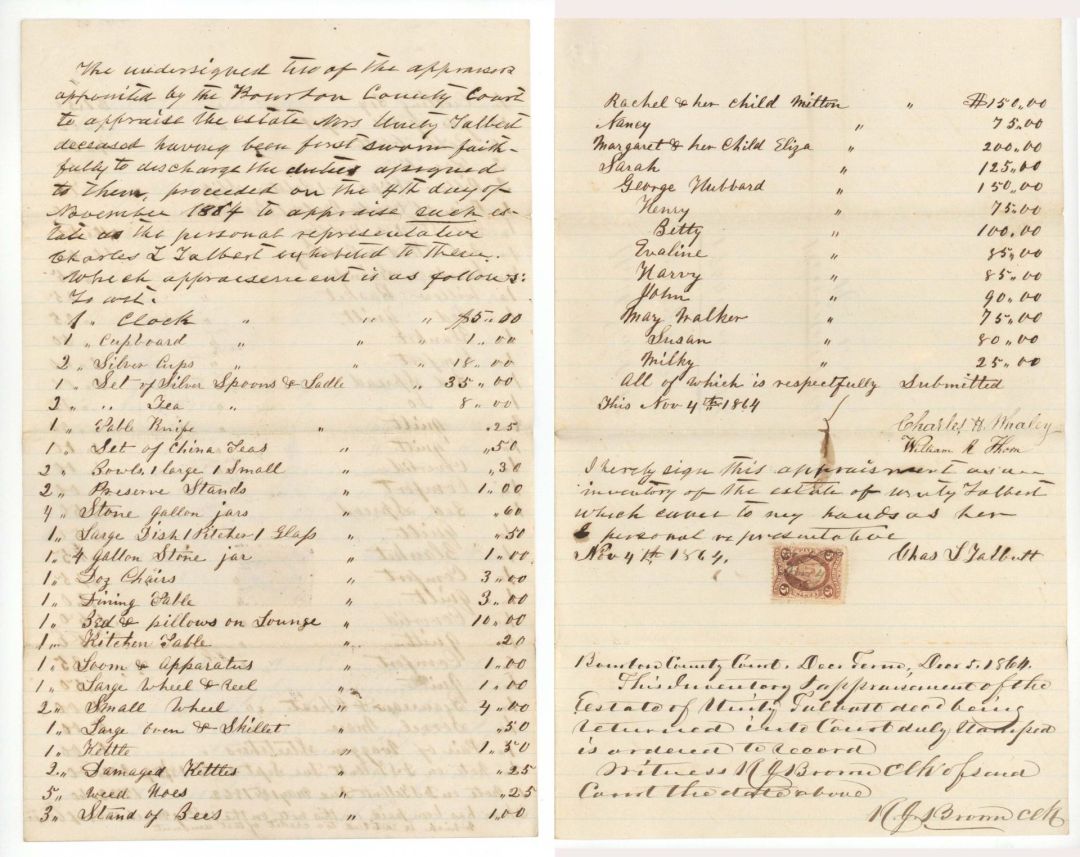 The undersigned two of the appraisors
appointed by the Bourbon County Court
to appraise the estate Mrs Unity Talbert
deceased having been first sworn faith-
fully to discharge the duties assigned
to them, proceeded on the 4th day of
November 1864 to appraise such es-
tate as the personal representative
Charles T Talbert exhibited to them.
Which appraisement is as follows:
To wit.
1 " Clock " " " $5.00
1 " Cupboard " " 1.00
2 " Silver Cups " " 18.00
1 " Set of Silver Spoons & Ladle " 35.00
2 " " Tea " 8.00
1 " Table Knife " .25
1 " Set of China Teas " .50
2 " Bowls, 1 large 1 Small " .30
2 " Preserve Stands " 1.00
4 " Stone gallon jars " .60
1 " Large Dish 1 Pitcher 1 Glass " .50
1 " 4 gallon Stone jar " 1.00
1 " Doz Chairs " 3.00
1 " Dining Table " 3.00
1 " Bed & pillows on Lounge " 10.00
1 " Kitchen Table " .20
1 " Loom & apparatus " 1.00
1 " Large Wheel & Reel " 1.00
2 " Small Wheel " 4.00
1 " Large Oven & Skillet " .50
1 " Kettle " 1.50
2 " Damaged Kettles " .25
5 " Weed Hoes " .25
3 " Stand of Bees " 1.00
Rachel & her child Milton " $150.00
Nancy " 75.00
Margaret & her Child Eliza " 200.00
Sarah " 125.00
George Hubbard " 150.00
Henry " 75.00
Betty " 100.00
Evaline " 85.00
Harvy " 85.00
John " 90.00
May Walker " 75.00
Susan " 80.00
Milky " 25.00
All of which is respectfully Submitted
This Nov 4th 1864
Charles H. Whaley
William R Thom
I hereby sign this appraisment as an
inventory of the estate of Unity Talbert
which came to my hands as her
personal representative
Nov 4th, 1864. Chas T Talbutt
Bourbon County Court. Dec Term, Dec 5. 1864.
This Inventory & appraisment of the
Estate of Unity Talbutt decd being
returned into Court duly Stamped
is ordered to record
Witness R J Brown Clk of said
Court the date above
R. J. Brown Clk